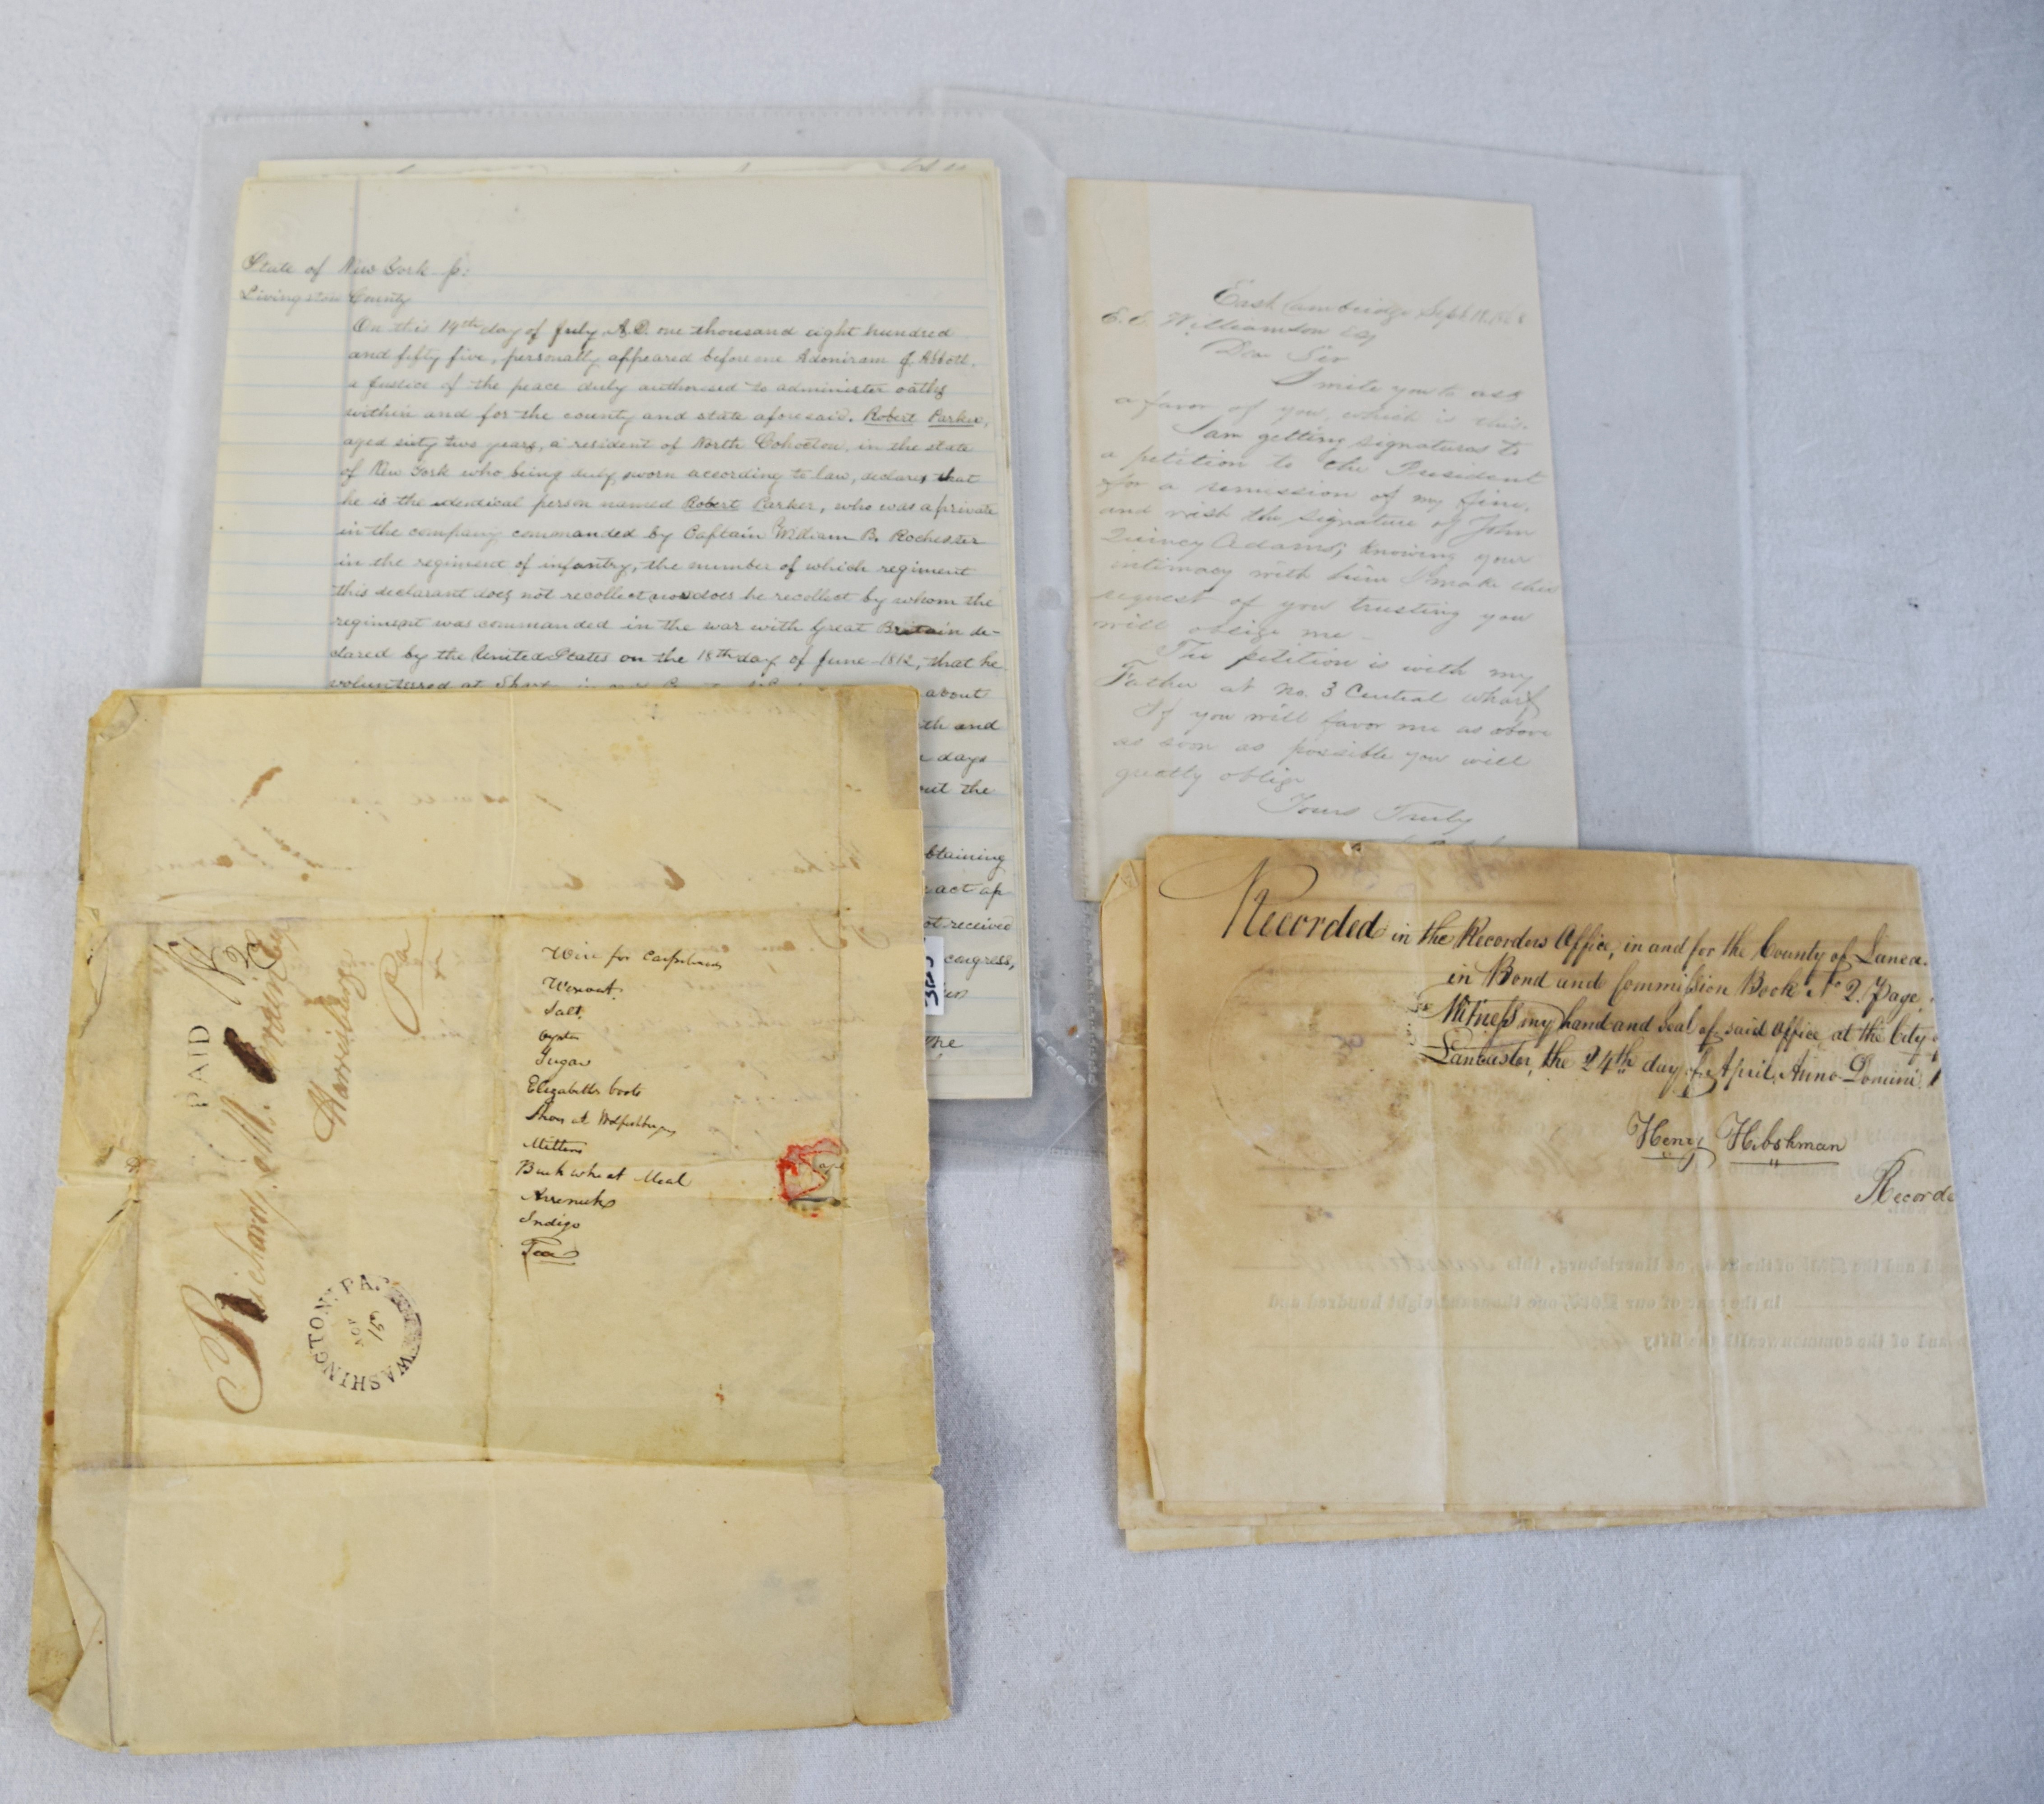 State of New York ss:
Livingston County
On this 19th day of July A.D. one thousand eight hundred
and fifty five, personally appeared before me Adoniram J. Abbott,
a justice of the peace duly authorised to administer oaths
within and for the county and state aforesaid. Robert Parker,
aged sixty two years, a resident of North Cohocton, in the state
of New York who being duly sworn according to law, declares that
he is the identical person named Robert Parker, who was a private
in the company commanded by Captain William B. Rochester
in the regiment of infantry, the number of which regiment
this declarant does not recollect nor does he recollect by whom the
regiment was commanded in the war with Great Britain de-
clared by the United States on the 18th day of June 1812, that he
volunteered at
about
th and
days
out the
btaining
act ap
ot received
congress,
the
East Cambridge Sept
E. C. Williamson Esq
Dear Sir
I write you to ask
a favor of you, which is this.
I am getting signatures to
a petition to the President
for a remission of my fine,
and wish the signature of John
Quincy Adams, knowing your
intimacy with him I make this
request of you trusting you
will oblige me -
The petition is with my
Father at No. 3 Central Wharf
If you will favor me as above
as soon as possible you will
greatly oblige
Yours Truly
PAID
Richard M. Crain Esq
Harrisburg
Pa
WASHINGTON. PA.
NOV
Wire for
Salt
Oyster
Sugar
Elizabeths boots
Shoes at
Mittens
Buckwheat Meal
Indigo
Tea
Recorded in the Recorders Office, in and for the County of Lanca.
in Bond and Commission Book No 2. Page
Witness my hand and seal of said Office, at the City
Lancaster, the 24th day of April, Anno Domini 1
Henry Hibshman
Recorde